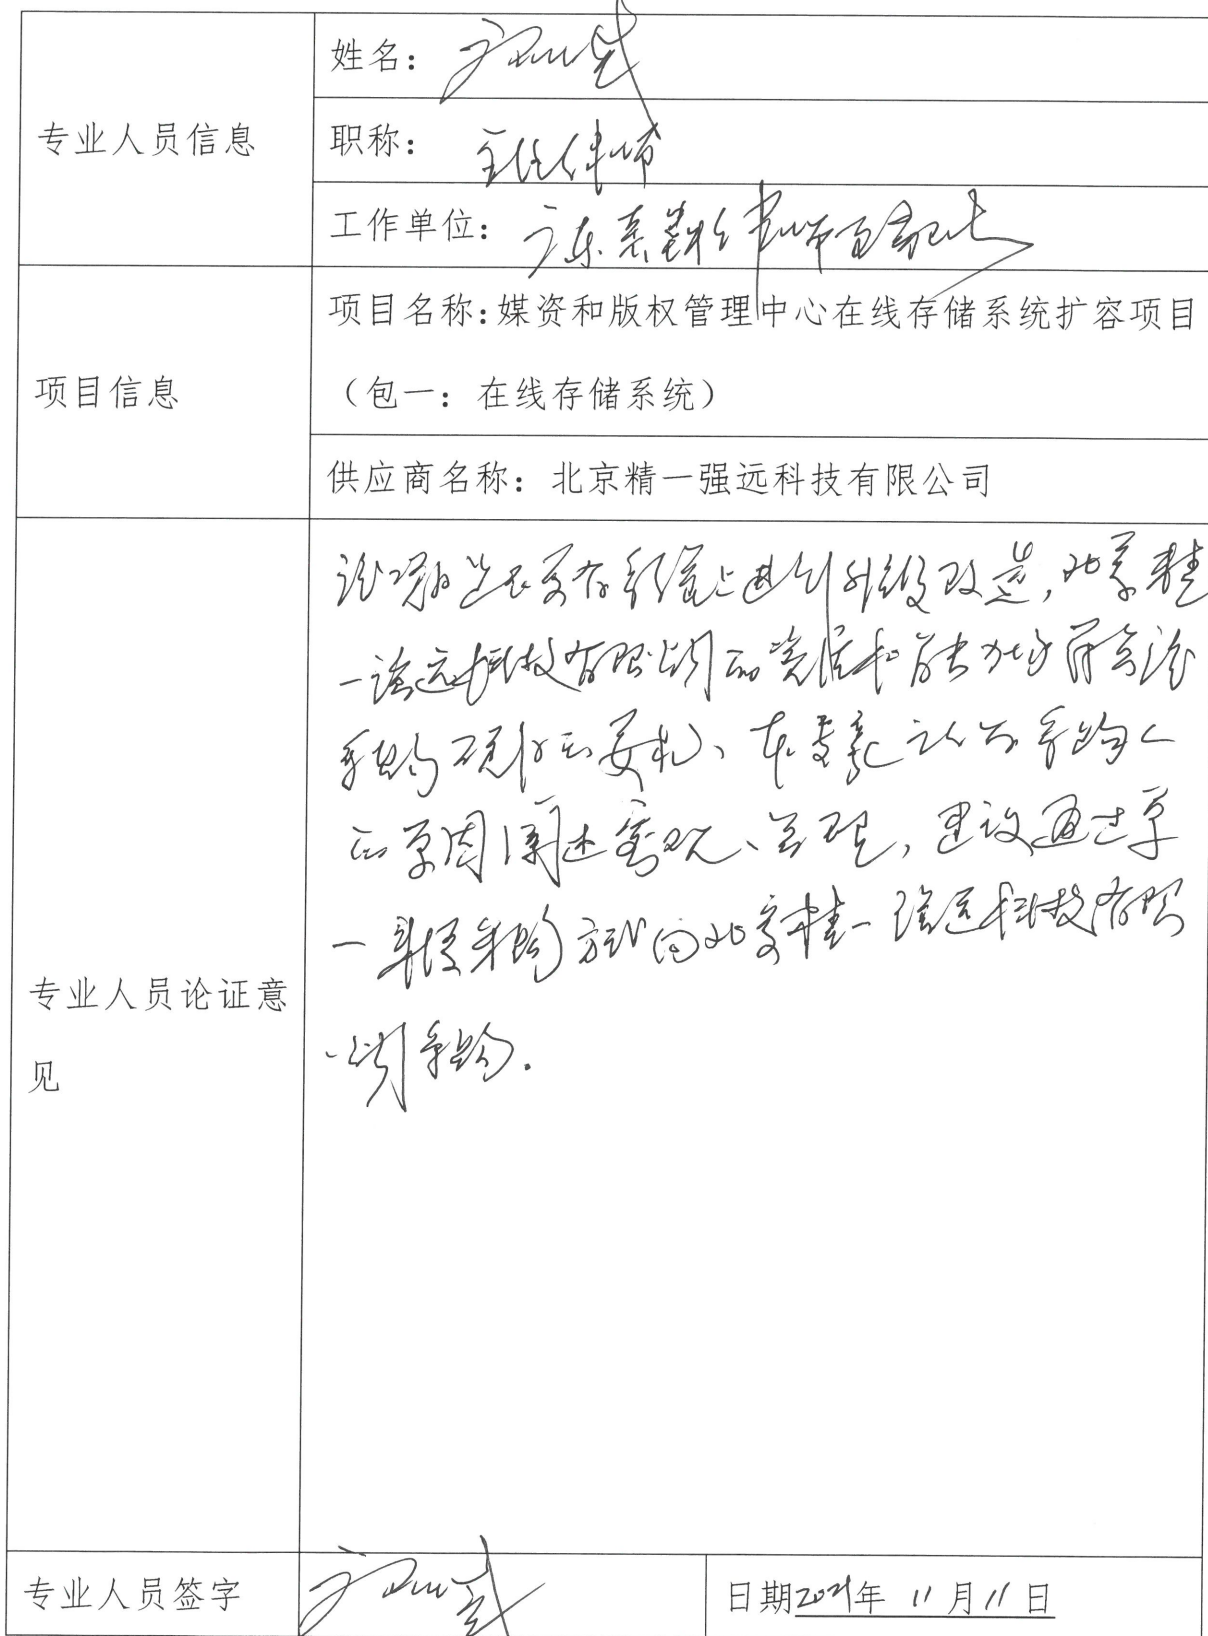 专业人员信息
姓名：
职称：主任律师
工作单位：广东 律师事务所
项目信息
项目名称：媒资和版权管理中心在线存储系统扩容项目
（包一：在线存储系统）
供应商名称：北京精一强远科技有限公司
专业人员论证意
见
该项目是在原有 上进行升级改造，北京精
一强远科技有限公司的资质和能力均符合该
采购项目的要求、本专家认为采购人
的原因阐述客观、合理，建议通过单
一来源采购方式向北京精一强远科技有限
公司采购.
专业人员签字
日期2021年 11月11日